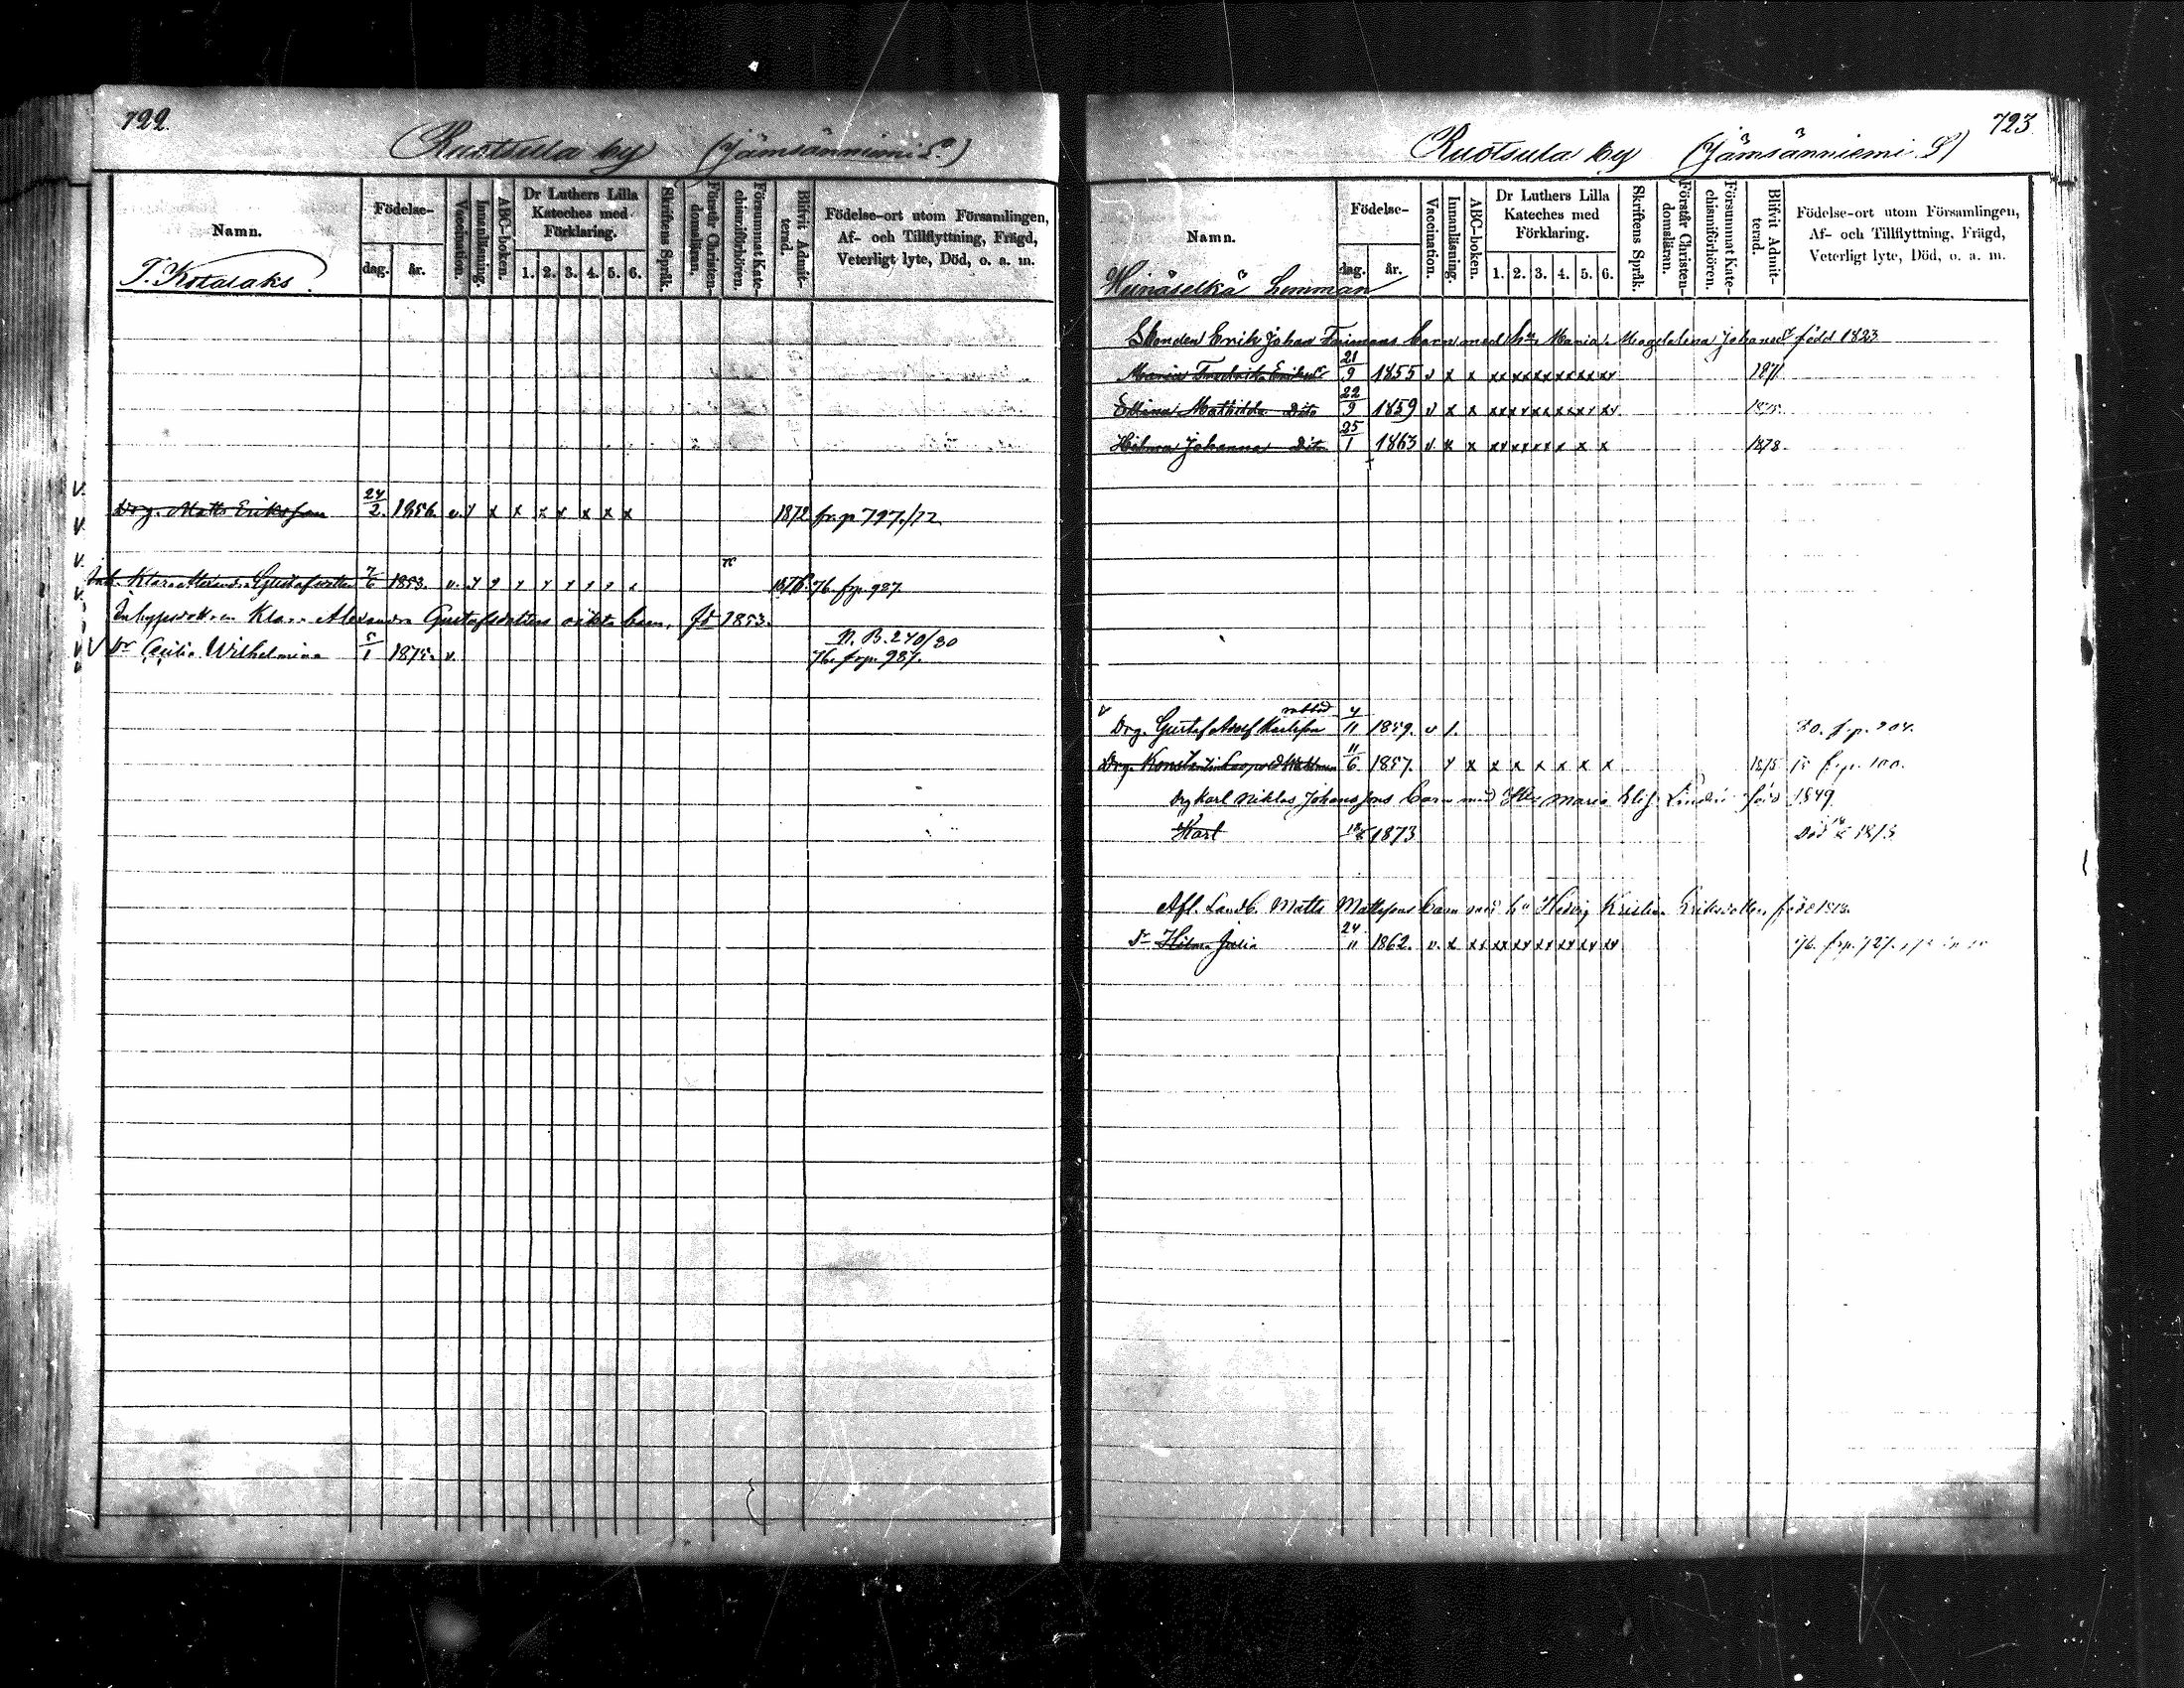 722.
Ruotsula by (Jämsänniemi S.)
Namn.
Födelse-
dag.
år.
Vaccination.
Innanläsning.
ABC-boken.
Dr Luthers Lilla Kateches med Förklaring.
1. 2. 3. 4. 5. 6.
Skriftens Språk.
Förstår Christen-domsläran.
Försummat Kate-chismiförhören.
Blifvit Admit-terad.
Födelse-ort utom Församlingen,
Af- och Tillflyttning, Frägd,
Veterligt lyte, Död, o. a. m.
T. Kotalaks.
Drg. Matts Eriksson 24/2. 1856. v. x x x x x x x x 1872 fr. p 797./72
Inh. Klara Alexandra Gustafsdotter 7/6 1853. v. 1876. 76. frp. 987.
Inhysesdottren Klara Alexandra Gustafsdotters oäkta barn, fd 1853.
N. B. 270/80
Dr Cecilia Wilhelmina 5/1 1875. v. 76. frp. 987.
723
Ruotsula by (Jämsänniemi S)
Namn.
Födelse-
dag.
år.
Vaccination.
Innanläsning.
ABC-boken.
Dr Luthers Lilla Kateches med Förklaring.
1. 2. 3. 4. 5. 6.
Skriftens Språk.
Förstår Christen-domsläran.
Försummat Kate-chismiförhören.
Blifvit Admit-terad.
Födelse-ort utom Församlingen,
Af- och Tillflyttning, Frägd,
Veterligt lyte, Död, o. a. m.
Heinäselkä hemman
Erik Johan barn med hu Maria Magdalena Johansdr född 1823
Maria Fredrika Eriksdr 21/9 1855 v x x xx xx xx xx xx xx 1871
Mathilda Dito 22/9 1859 v x x xx xx xx xx xx xx
Hilma Johanna Dito 25/1 1863 v. x x xx xx xx x x x 1878.
Drg. Gustaf Adolf Karlsson 4/11 1859. v 1. 80. f. p. 204.
Drg. Konstantin Leopold 11/6 1857. x x x x x x x frp. 100.
Drg Karl Niklas Johanssons barn med Maria född 1849
Karl 1873 Död
Afl. Landb. Matts Mattssons barn med hu Hedvig Kristina Eriksdotter född
Dr Hilma Julia 24/11 1862. v. x xx xx xx xx xx xx xx 76. frp. 727.